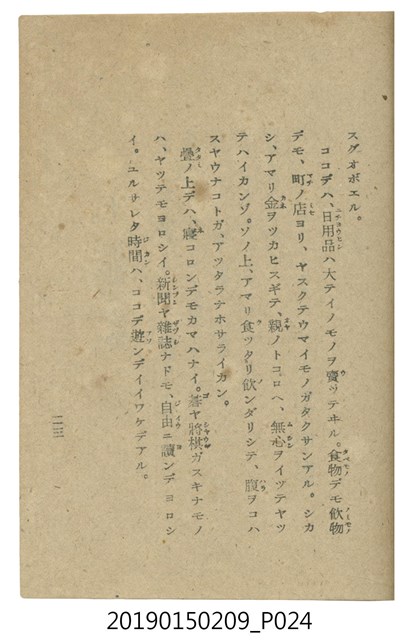 スグオボエル。
ココデハ、日用品ハ大テイノモノヲ賣ツテヰル。食物デモ飮物
デモ、町ノ店ヨリ、ヤスクテウマイモノガタクサンアル。シカ
シ、アマリ金ヲツカヒスギテ、親ノトコロヘ、無心ヲイツテヤツ
テハイカンゾ。ソノ上、アマリ食ツタリ飮ンダリシテ、腹ヲコハ
スヤウナコトガ、アツタラナホサライカン。
疊ノ上デハ、寢コロンデモカマハナイ。碁ヤ將棋ガスキナモノ
ハ、ヤツテモヨロシイ。新聞ヤ雜誌ナドモ、自由ニ讀ンデヨロシ
イ。ユルサレタ時間ハ、ココデ遊ンデイイワケデアル。
二三
20190150209_P024